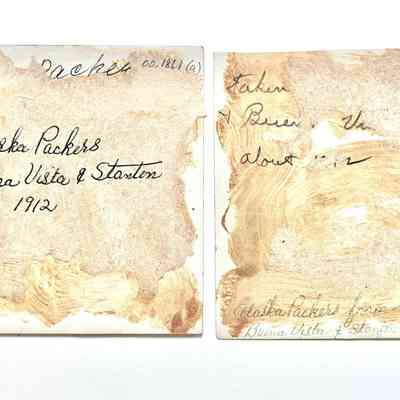 Packe
00.1811(a)
ska Packers
na Vista & Stanton
1912
taken
Buen
about
Alaska Packers from
Buena Vista & Stanton